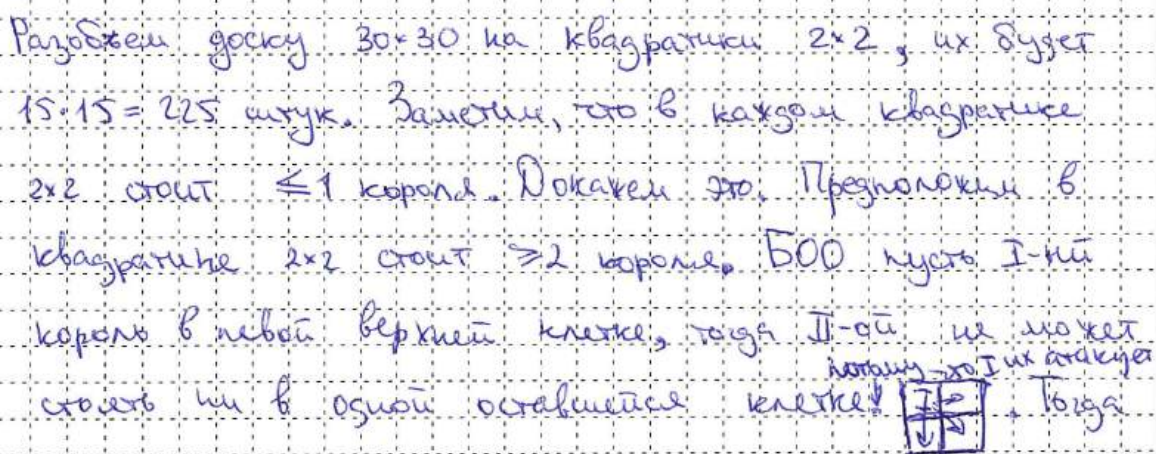 Разобьем доску 30×30 на квадратики 2×2, их будет
15·15=225 штук. Заметим, что в каждом квадратике
2×2 стоит ≤1 короля. Докажем это. Предположим в
квадратике 2×2 стоит ≥2 короля. БОО пусть I-ый
король в левой верхней клетке, тогда II-ой не может
потому-что I их атакует
стоять ни в одной оставшейся клетке! I . Тогда